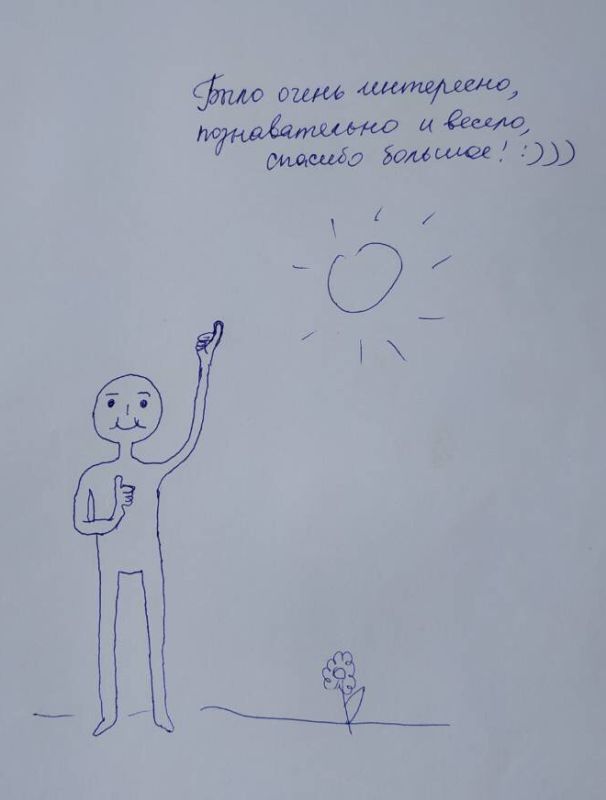 Было очень интересно,
познавательно и весело,
спасибо большое! :)))